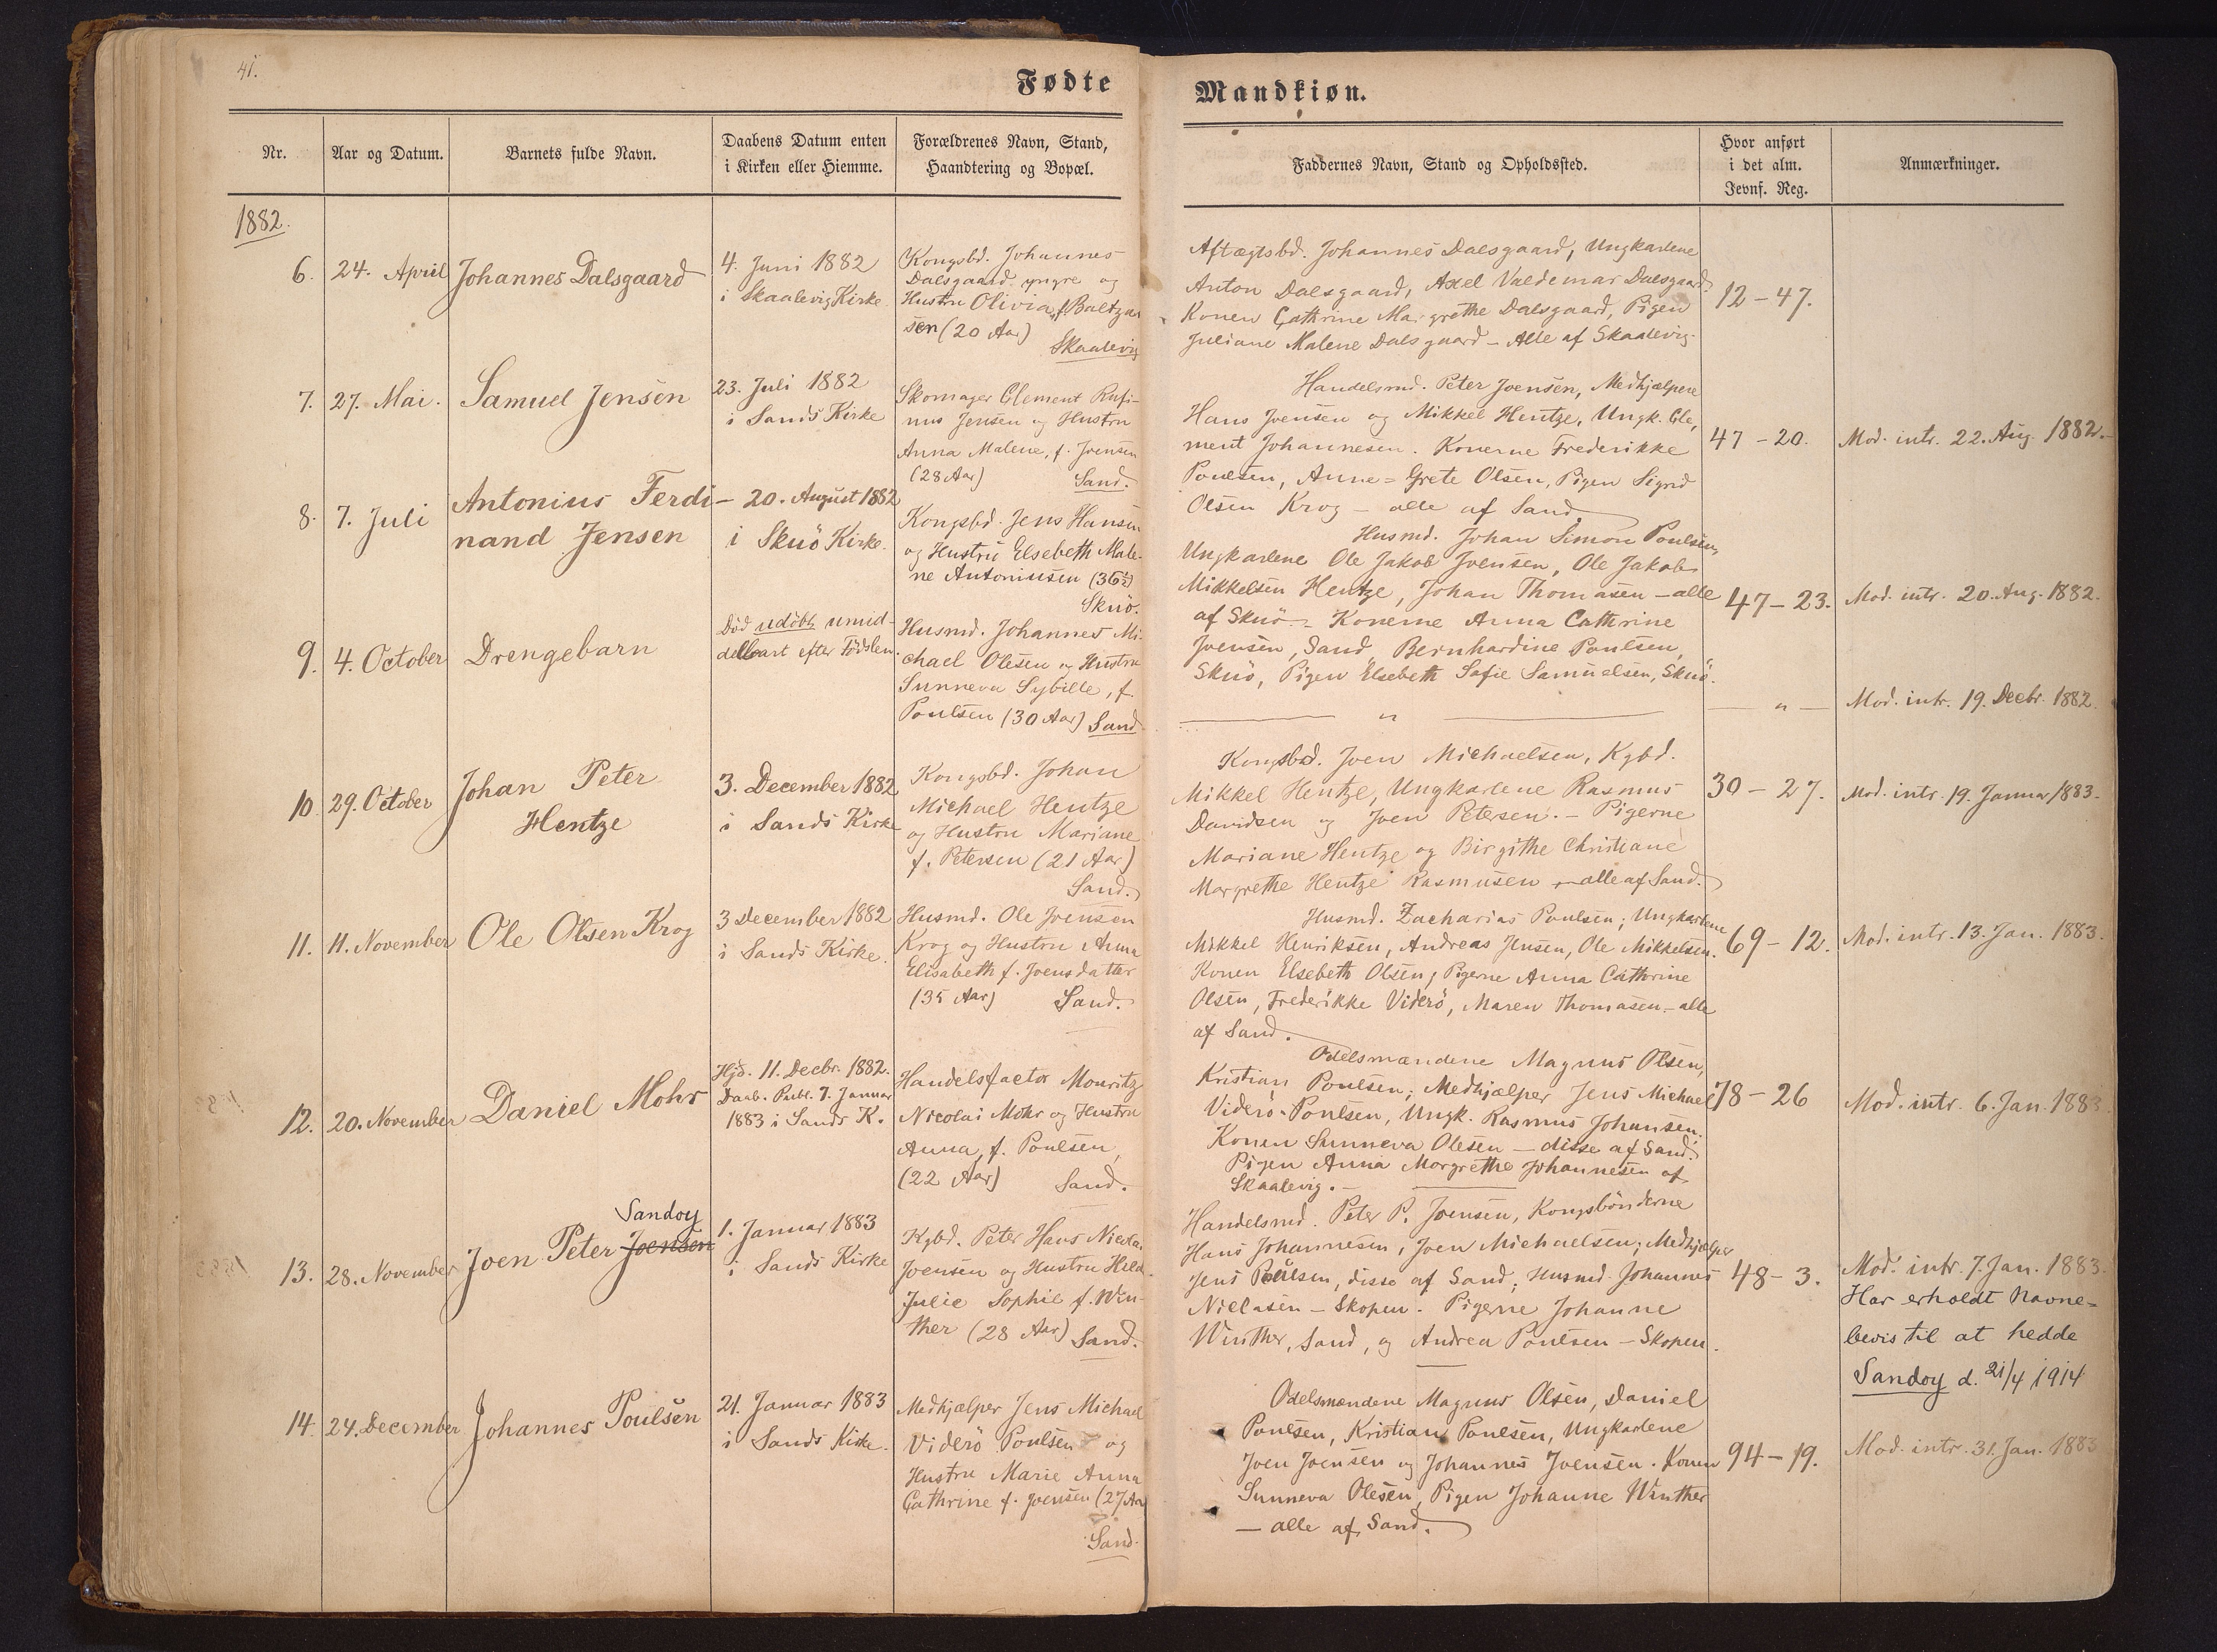 41.
Fødte
Mandkiøn.
Nr.
Aar og Datum.
Barnets fulde Navn.
Daabens Datum enten
i Kirken eller Hiemme.
Forældrenes Navn, Stand,
Haandtering og Bopæl.
Faddernes Navn, Stand og Opholdssted.
Hvor anført
i det alm.
Jevnf. Reg.
Anmærkninger.
1882.
6.
24. April
Johannes Dalsgaard
4. Juni 1882
i Skaalevig Kirke
Kongsbd. Johannes
Dalsgaard yngre og
Hustru Olivia, f. Baltzar
sen (20 Aar)
Skaalevig
Aftægtsbd. Johannes Dalsgaard, Ungkarlene
Anton Dalsgaard, Axel Valdemar Dalsgaard.
Konen Cathrine Margrethe Dalsgaard, Pigen
Juliane Malene Dalsgaard – Alle af Skaalevig.
12 – 47.
7.
27. Mai.
Samuel Jensen
23. Juli 1882
i Sands Kirke
Skomager Clement Rufi-
nus Jensen og Hustru
Anna Malene, f. Joensen
(28 Aar)
Sand.
Handelsmd. Peter Joensen, Medhjælpere
Hans Joensen og Mikkel Hentze, Ungk. Cle,
ment Johannesen. Konerne Frederikke
Poulsen, Anne=Grete Olsen, Pigen Sigrid
Olsen Krog – alle af Sand
47 – 20.
Mod. intr. 22. Aug. 1882.
8.
7. Juli
Antonius Ferdi-
nand Jensen
20. August 1882
i Skuö Kirke.
Kongsbd. Jens Hansen
og Hustru Elsebeth Male-
ne Antoniusen (36½)
Skuö.
Husmd. Johan Simon Poulsen,
Ungkarlene Ole Jakob Joensen, Ole Jakob
Mikkelsen Hentze, Johan Thomasen – alle
af Skuö. – Konerne Anna Cathrine
Joensen, Sand, Bernhardine Poulsen,
Skuö, Pigen Elsebeth Sofie Samuelsen, Skuö.
47 – 23.
Mod. intr. 20. Aug. 1882.
9.
4. October
Drengebarn
Död udöbt umid-
delbart efter Födslen.
Husmd. Johannes Mi-
chael Olesen og Hustru
Sunneva Sybille, f.
Poulsen (30 Aar) Sand
— " —
— " —
Mod. intr. 19. Decbr. 1882.
10.
29. October
Johan Peter
Hentze
3. December 1882
i Sands Kirke
Kongsbd. Johan
Michael Hentze
og Hustru Mariane
f. Petersen (21 Aar)
Sand.
Kongsbd. Joen Michaelsen, Kgbd.
Mikkel Hentze, Ungkarlene Rasmus
Davidsen og Joen Petersen. – Pigerne
Mariane Hentze og Birgithe Christiane
Margrethe Hentze Rasmusen – alle af Sand.
30 – 27.
Mod. intr. 19. Januar 1883.
11.
11. November
Ole Olsen Krog
3 December 1882
i Sands Kirke.
Husmd. Ole Joensen
Krog og Hustru Anna
Elisabeth f. Joensdatter
(35 Aar)
Sand.
Husmd. Zacharias Poulsen; Ungkarlene
Mikkel Henriksen, Andreas Jensen, Ole Mikkelsen.
Konen Elsebeth Olsen; Pigerne Anna Cathrine
Olsen, Frederikke Viderö, Maren Thomasen – alle
af Sand.
69 – 12.
Mod. intr. 13. Jan. 1883.
12.
20. November
Daniel Mohr
Hjd. 11. Decbr. 1882.
Daab. Publ. 7. Januar
1883 i Sands K.
Handelsfactor Mouritz
Nicolai Mohr og Hustru
Anna, f. Poulsen,
(22 Aar)
Sand.
Odelsmændene Magnus Olsen,
Kristian Poulsen; Medhjælper Jens Michael
Viderö-Poulsen, Ungk. Rasmus Johansen.
Konen Sunneva Olesen – disse af Sand.
Pigen Anna Margrethe Johannesen af
Skaalevig. –
78 – 26
Mod. intr. 6. Jan. 1883
13.
28. November
Sandoy
Joen Peter Joensen
1. Januar 1883
i Sands Kirke
Kgbd. Peter Hans Nicolai
Joensen og Hustru Held
Julie Sophie f. Win-
ther (28 Aar) Sand.
Handelsmd. Peter P. Joensen, Kongsbönderne
Hans Johannesen, Joen Michaelsen; Medhjælper
Jens Poulsen, disse af Sand; Husmd. Johannes
Nielasen – Skopen. Pigerne Johanne
Winther, Sand, og Andrea Poulsen – Skopen.
48 – 3.
Mod. intr. 7. Jan. 1883.
Har erholdt Navne=
bevis til at hedde
Sandoy d. 21/4 1914
14.
24. December
Johannes Poulsen
21. Januar 1883
i Sands Kirke.
Medhjælper Jens Michael
Viderö Poulsen og
Hustru Marie Anna
Cathrine f. Joensen (27 Aar
Sand.
Odelsmændene Magnus Olsen, Daniel
Poulsen, Kristian Poulsen, Ungkarlene
Joen Joensen og Johannes Joensen. Konen
Sunneva Olesen, Pigen Johanne Winther
– alle af Sand.
94 – 19.
Mod. intr. 31. Jan. 1883